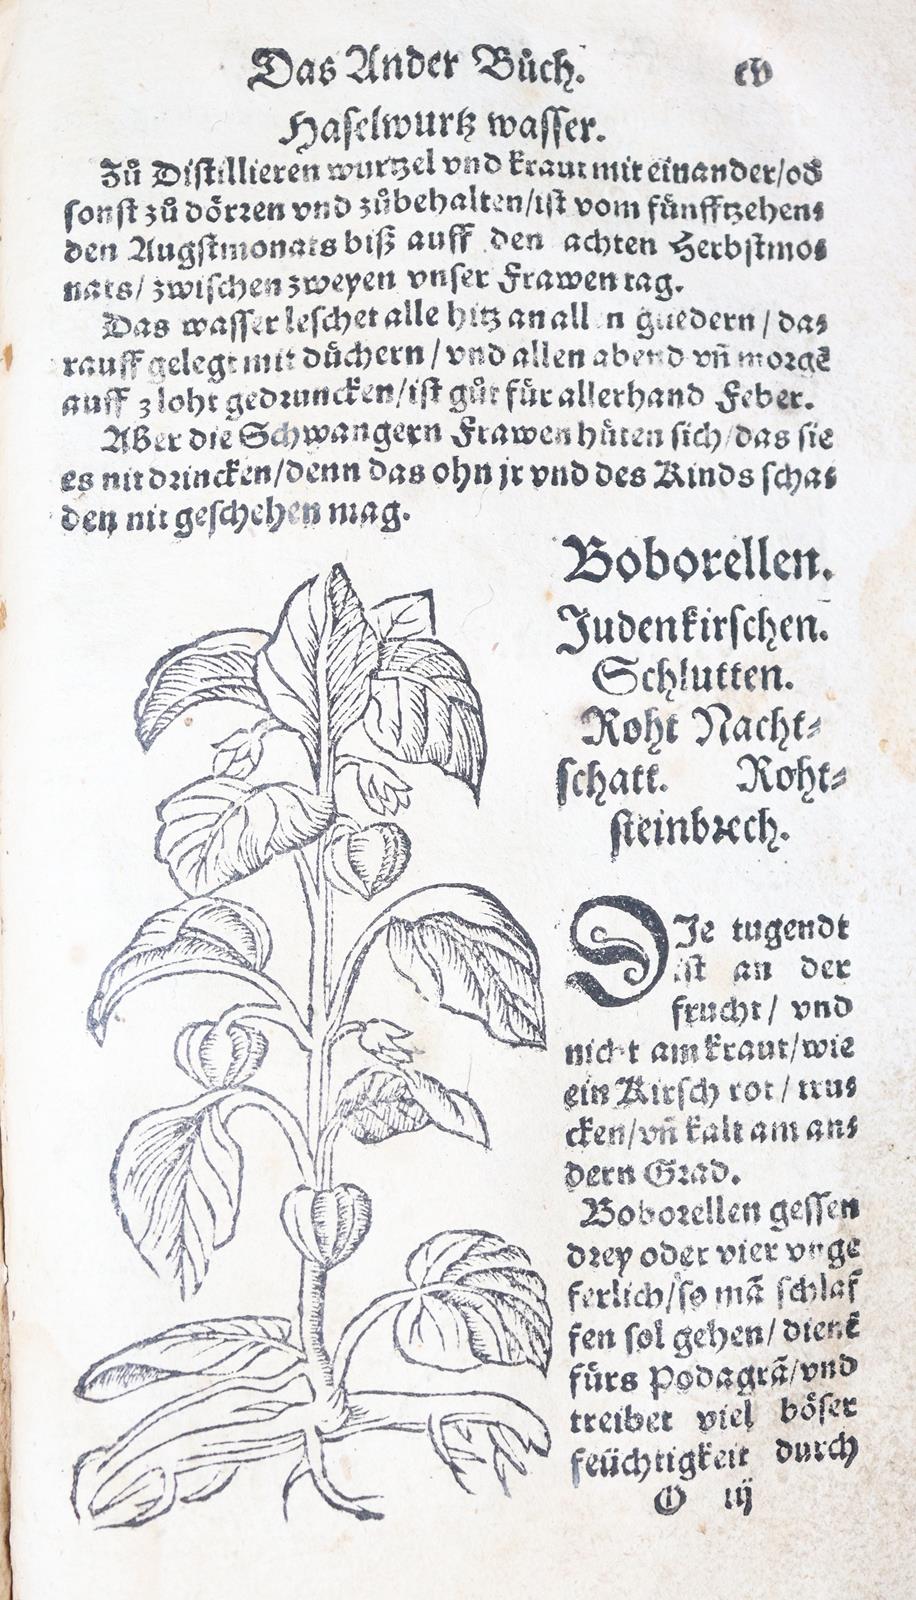 Das Ander Bůch. cv
Haselwurtz wasser.
Zů Distillieren wurtzel vnd kraut mit einander/od
sonst zů dörꝛen vnd zůbehalten/ist vom fünfftzehen⸗
den Augstmonats biß auff den achten Herbstmo⸗
nats/ zwischen zweyen vnser Frawen tag.
Das wasser leschet alle hitz an allen gliedern/ da⸗
rauff gelegt mit düchern/ vnd allen abend vñ morgẽ
auff ʒ loht gedruncken/ist gůt für allerhand Feber.
Aber die Schwangern Frawen hüten sich/das sie
es nit drincken/denn das ohn jr vnd des Kinds scha⸗
den nit geschehen mag.
Boborellen.
Judenkirschen.
Schlutten.
Roht Nacht⸗
schatt. Roht⸗
steinbrech.
DJe tugendt
ist an der
frucht/ vnd
nicht am kraut/wie
ein Kirsch rot/ tru⸗
cken/vñ kalt am an⸗
dern Grad.
Boborellen gessen
drey oder vier vnge
ferlich/so mã schlaf
fen sol gehen/ dienẽ
fürs Podagrã/vnd
treibet viel böser
feüchtigkeit durch
O iij